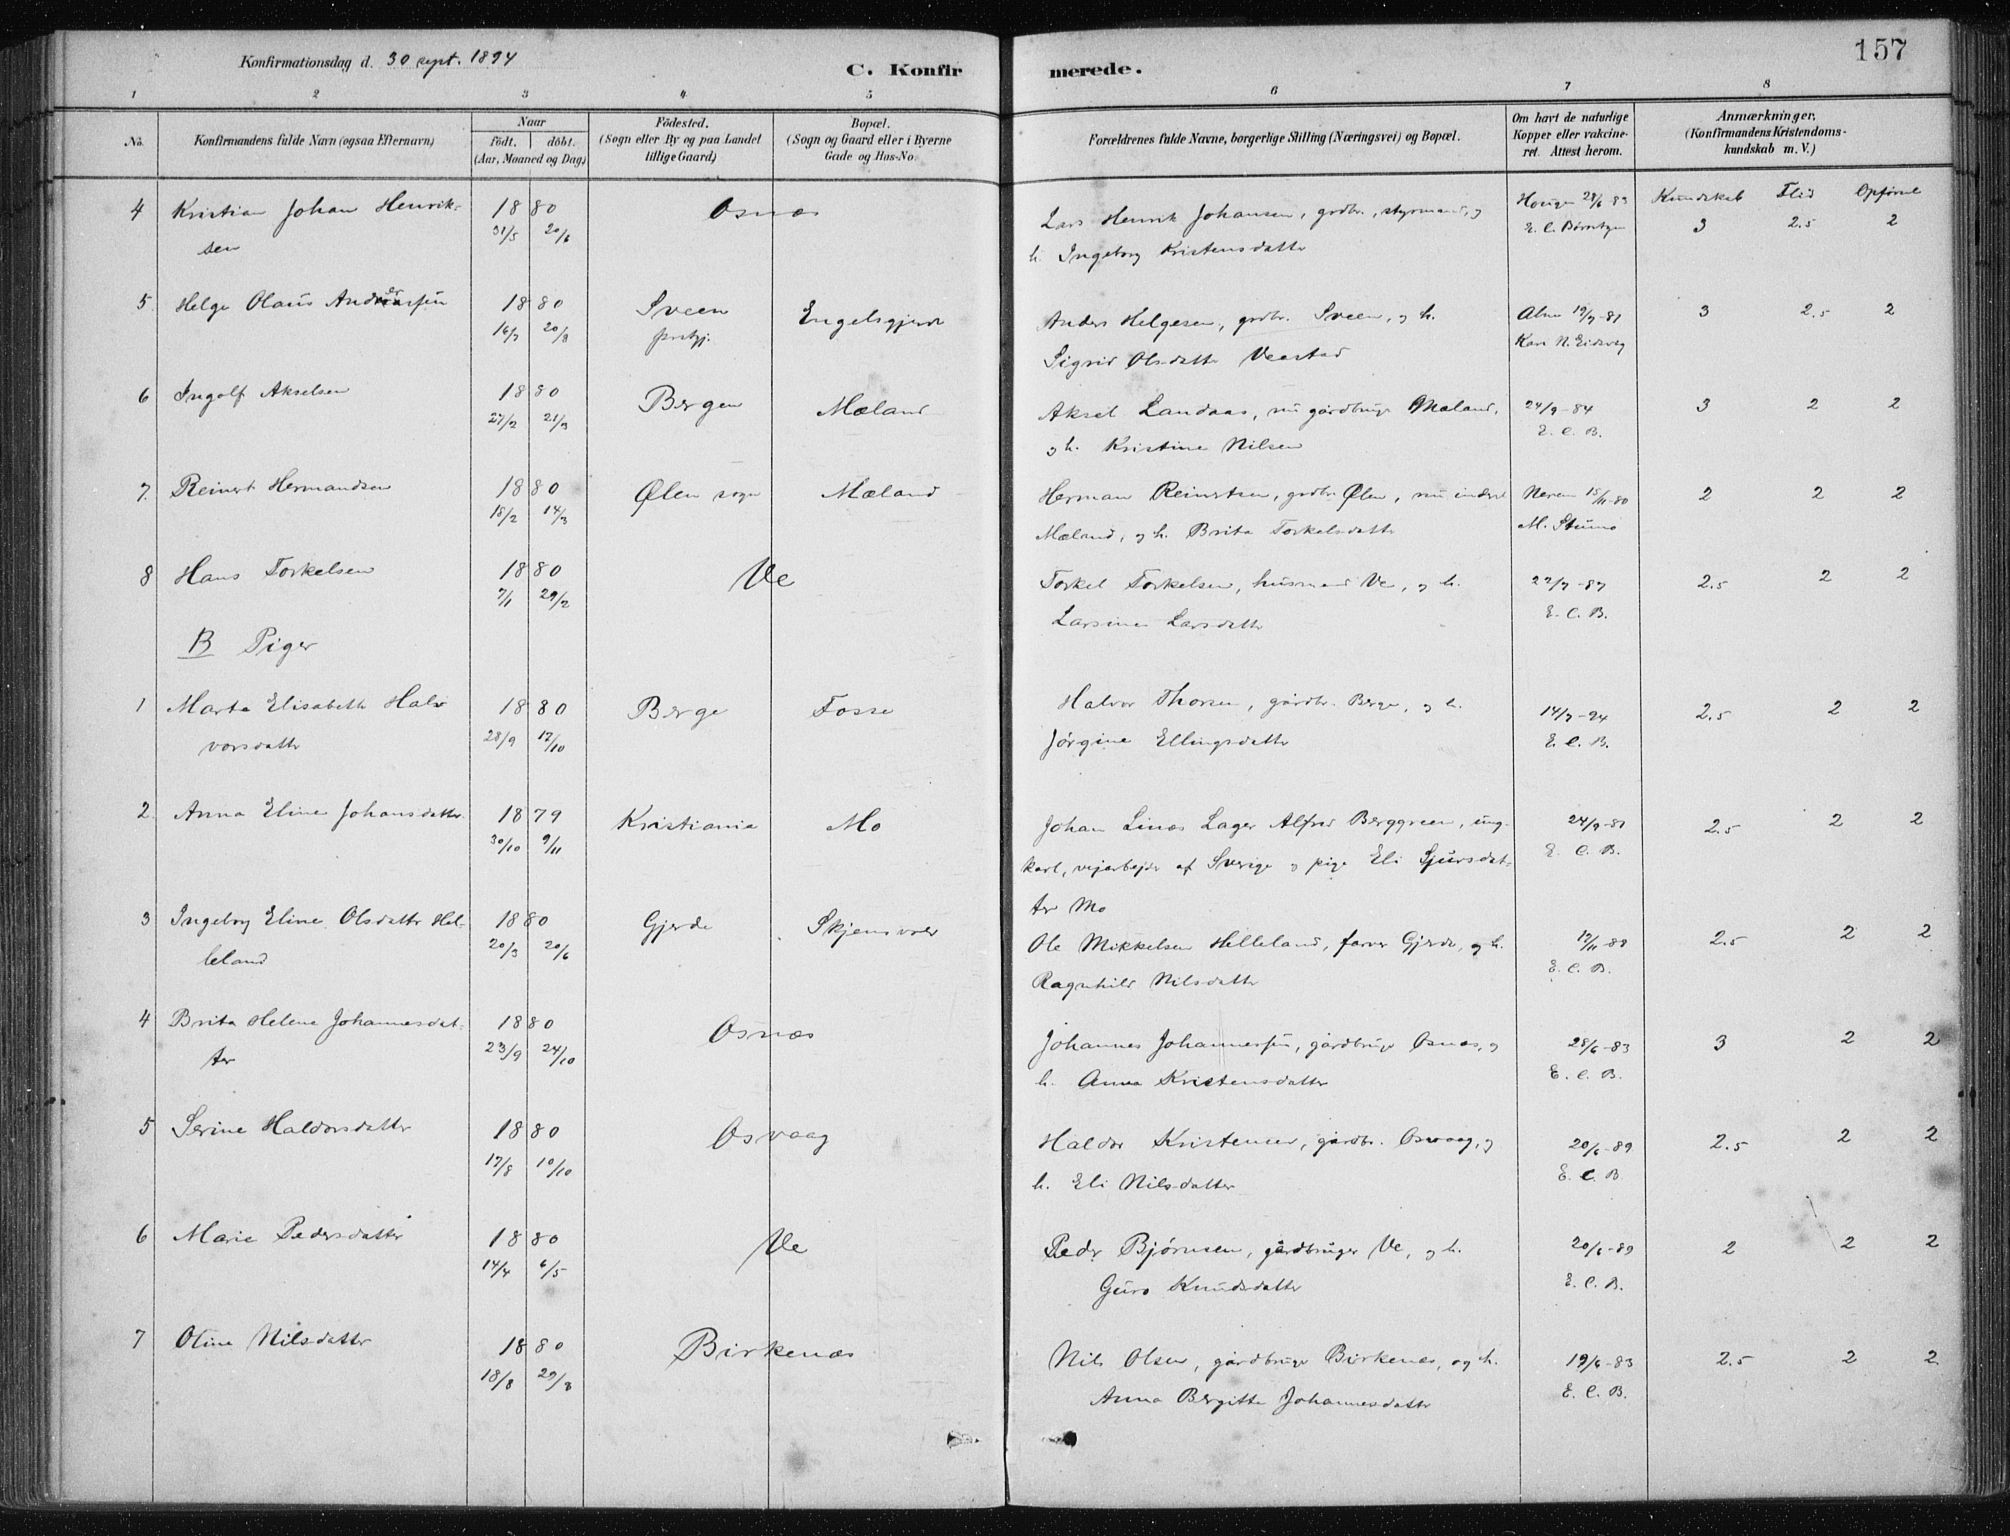 157
Konfirmationsdag d. 30 sept. 1894
C. Konfirmerede.
1 2 3 4 5 6 7 8
No. Konfirmandens fulde Navn (ogsaa Efternavn) Naar født. døbt. (Aar, Maaned og Dag) Fødested. (Sogn eller By og paa Landet tillige Gaard) Bopæl. (Sogn og Gaard eller i Byerne Gade og Hus-No. Forældrenes fulde Navne, borgerlige Stilling (Næringsvei) og Bopæl. Om havt de naturlige Kopper eller vakcineret. Attest herom. Anmærkninger. (Konfirmandens Kristendomskundskab m. V.)
Kundskab Flid Opførsel
4 Kristian Johan Henrik- 1880 Osnæs Lars Henrik Johansen, grdbr., styrmand, og Houge 28/6 83
sen 31/5 20/6 h. Ingeborg Kristensdatter E. C. 3 2.5 2
5 Helge Olaus Andersen 1880 Sveen Engelsgjerde Anders Helgesen, grdbr. Sveen, og h. 19/7-81 3 2.5 2
16/7 20/8 prstgj. Sigrid Olsdatter Veastad Kars N. Eidsvåg
6 Ingolf Akselsen 1880 Bergen Mæland Aksel Landaas, nu gårdbruger Mæland, 24/9-84 3 2 2
27/2 21/3 og h. Kristine Nilsen E. C. B.
7. Reinert Hermandsen 1880 Ølen sogn Mæland Herman Reinertsen, grdbr. Ølen, nu inderst 15/11-80 2 2 2
18/2 14/3 Mæland, og h. Brita Torkelsdatter M. Stumo
8 Hans Torkelsen 1880 Ve Torkel Torkelsen, husmand Ve, og h. 22/7-87 2.5 2 2
7/1 29/2 Larsine Larsdatter E. C. B.
B Piger
1 Marta Elisabeth Hal- 1880 Berge Fosse Halvor Thorsen, gårdbr. Berge, og h. 14/7-94 2.5 2 2
vorsdatter 28/9 17/10 Jørgine Ellingsdatter E. C. B.
2 Anna Eline Johansdatter 1879 Kristiania Mo Johan Linus Lager Alfred Berggreen, ung- 24/9-81 2.5 2 2
30/10 9/11 karl, vejarbejder af Sverige og pige Eli Sjursdat- E. C. B.
ter Mo
3 Ingeborg Eline Olsdatter Hel- 1880 Gjerde Skjensvoer Ole Mikkelsen Helleland, farver Gjerde, og h. 12/11-88 2.5 2 2
leland 20/3 20/6 Ragnhild Nilsdatter E. C. B.
4 Brita Helene Johannesdat- 1880 Osnæs Johannes Johannesen, gårdbruger Osnæs, og 28/6-83 3 2 2
ter 23/9 24/10 h. Anna Kristensdatter E. C. B.
5 Serine Haldorsdatter 1880 Osvaag Haldor Kristensen, gårdbr. Osvaag, og 20/6-89 2.5 2 2
17/8 10/10 h. Eli Nilsdatter E. C. B.
6 Marie Pedersdatter 1880 Ve Peder Bjørnsen, gårdbruger Ve, og h. 20/6-89 2 2 2
14/4 6/5 Guro Knudsdatter E. C. B.
7 Oline Nilsdatter 1880 Birkenæs Nils Olsen, gårdbruger Birkenæs, og h. 19/6-83 2.5 2 2
18/8 29/8 Anna Bergitte Johannesdatter E. C. B.